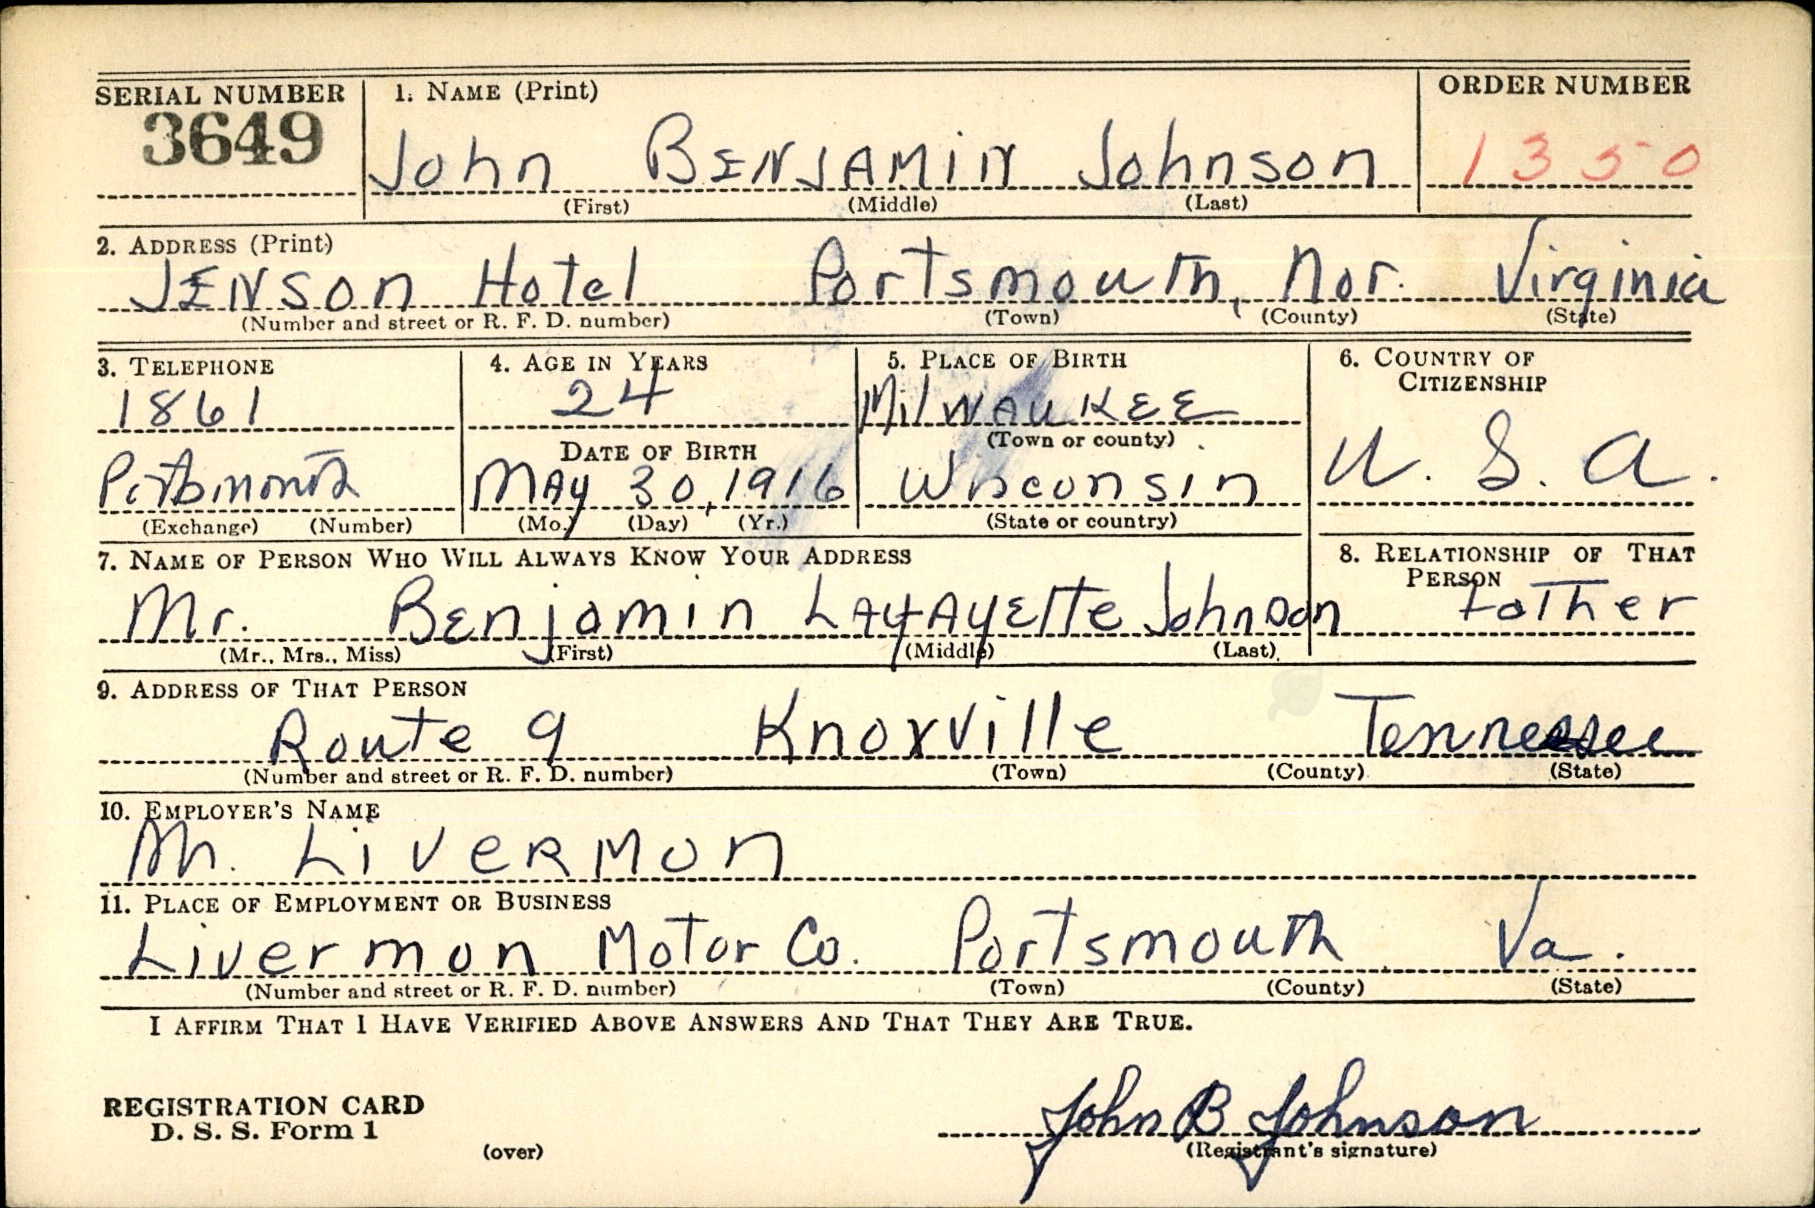 SERIAL NUMBER 1. NAME (Print) ORDER NUMBER
3649 John BENJAMIN Johnson 1350
(First) (Middle) (Last)
2. ADDRESS (Print)
JENSON Hotel Portsmouth, Nor. Virginia
(Number and street or R. F. D. number) (Town) (County) (State)
3. TELEPHONE 4. AGE IN YEARS 5. PLACE OF BIRTH 6. COUNTRY OF CITIZENSHIP
1861 24 MilWAUKEE
DATE OF BIRTH (Town or county)
MAY 30, 1916 Wisconsin U. S. A.
(Exchange) (Number) (Mo.) (Day) (Yr.) (State or country)
7. NAME OF PERSON WHO WILL ALWAYS KNOW YOUR ADDRESS 8. RELATIONSHIP OF THAT PERSON
Mr. BEnjamin LAfAyEtte Johnson father
(Mr., Mrs., Miss) (First) (Middle) (Last)
9. ADDRESS OF THAT PERSON
Route 9 Knoxville Tennessee
(Number and street or R. F. D. number) (Town) (County) (State)
10. EMPLOYER'S NAME
Mr. LiveRMon
11. PLACE OF EMPLOYMENT OR BUSINESS
Livermon Motor Co. Portsmouth Va.
(Number and street or R. F. D. number) (Town) (County) (State)
I AFFIRM THAT I HAVE VERIFIED ABOVE ANSWERS AND THAT THEY ARE TRUE.
REGISTRATION CARD
D. S. S. Form 1 John B Johnson
(over) (Registrant's signature)